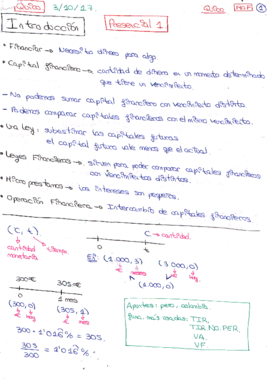 Quico 3/10/17. Quico MGF 1
Introducción Presencial 1
• Financiar → Necesito dinero para algo
• Capital financiero → cantidad de dinero en un momento determinado
que tiene un vencimiento.
- No podemos sumar capital financiero con vencimiento distinto
- Podemos comparar capitales financieros con el mismo vencimiento.
• Una Ley: substituir los capitales futuros
el capital futuro vale menos que el actual.
• Leyes Financieras → sirven para poder comparar capitales financieros
con vencimientos distintos.
• Micro prestamos → Los intereses son pequeños.
• Operación Financiera → Intercambio de capitales financieros
(C, t)
cantidad monetaria
tiempo
C → cantidad
0 t
EJ: (1.000, 3) (3.000, 0)
€ meses
(1.000, 0)
300€ 305€
0 1 mes
(300, 0) (305, 1)
€ mes € mes
300 · 1'016̂% = 305.
305/300 = 1'016̂% ·
Apuntes: peso, calambis
func. más usadas: TIR,
TIR.NO.PER.
VA.
VF.